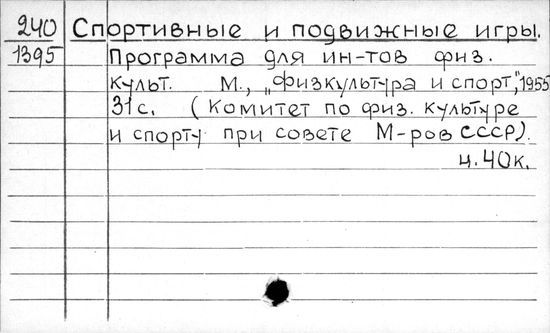 240 Спортивные и подвижные игры.
1395 Программа для ин-тов физ.
культ. М., „Физкультура и спорт", 1955
31с. (Комитет по физ. культуре
и спорту при совете М-ров СССР).
ц. 40к.